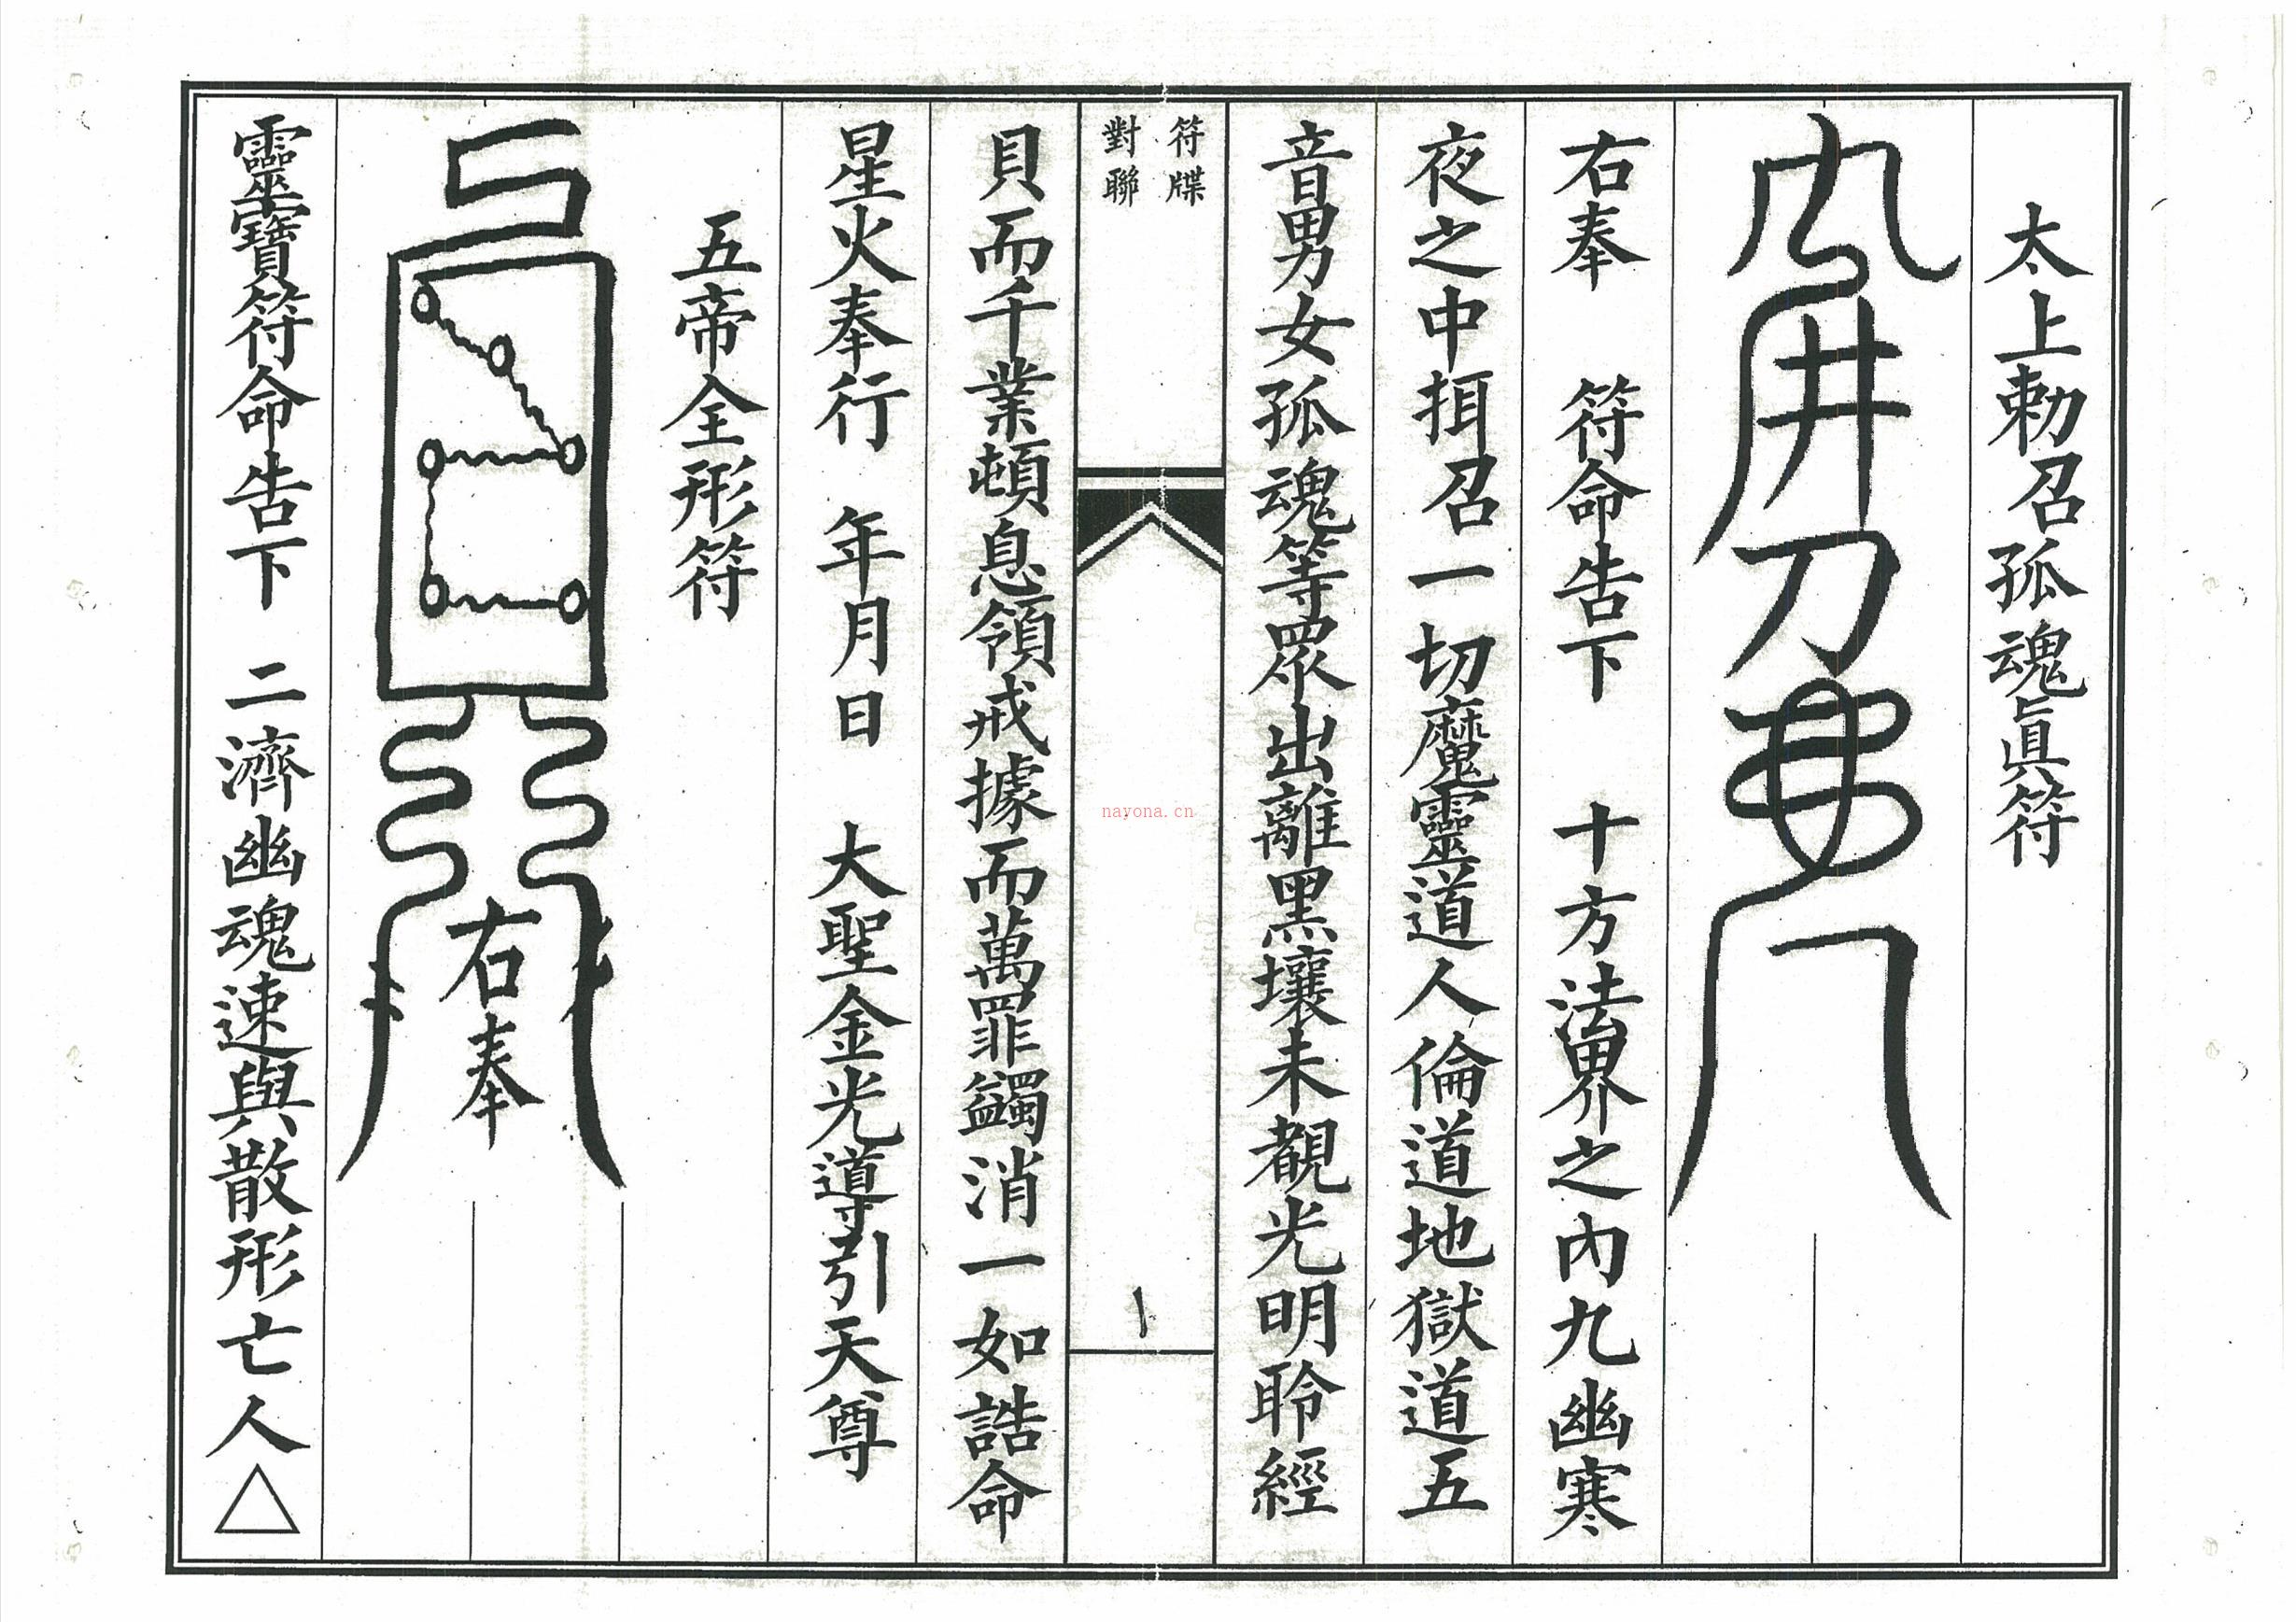 太上勅召孤魂眞符
右奉　符命告下　十方法界之內九幽寒
夜之中抇召一切魔靈道人倫道地獄道五
音男女孤魂等眾出離黑壤未覩光明聆經
符牒
對聯
nayona.cn
貝而千業頓息領戒據而萬罪蠲消一如誥命
星火奉行　年月日　大聖金光導引天尊
五帝全形符
右奉
靈寶符命告下　二濟幽魂速與散形亡人△